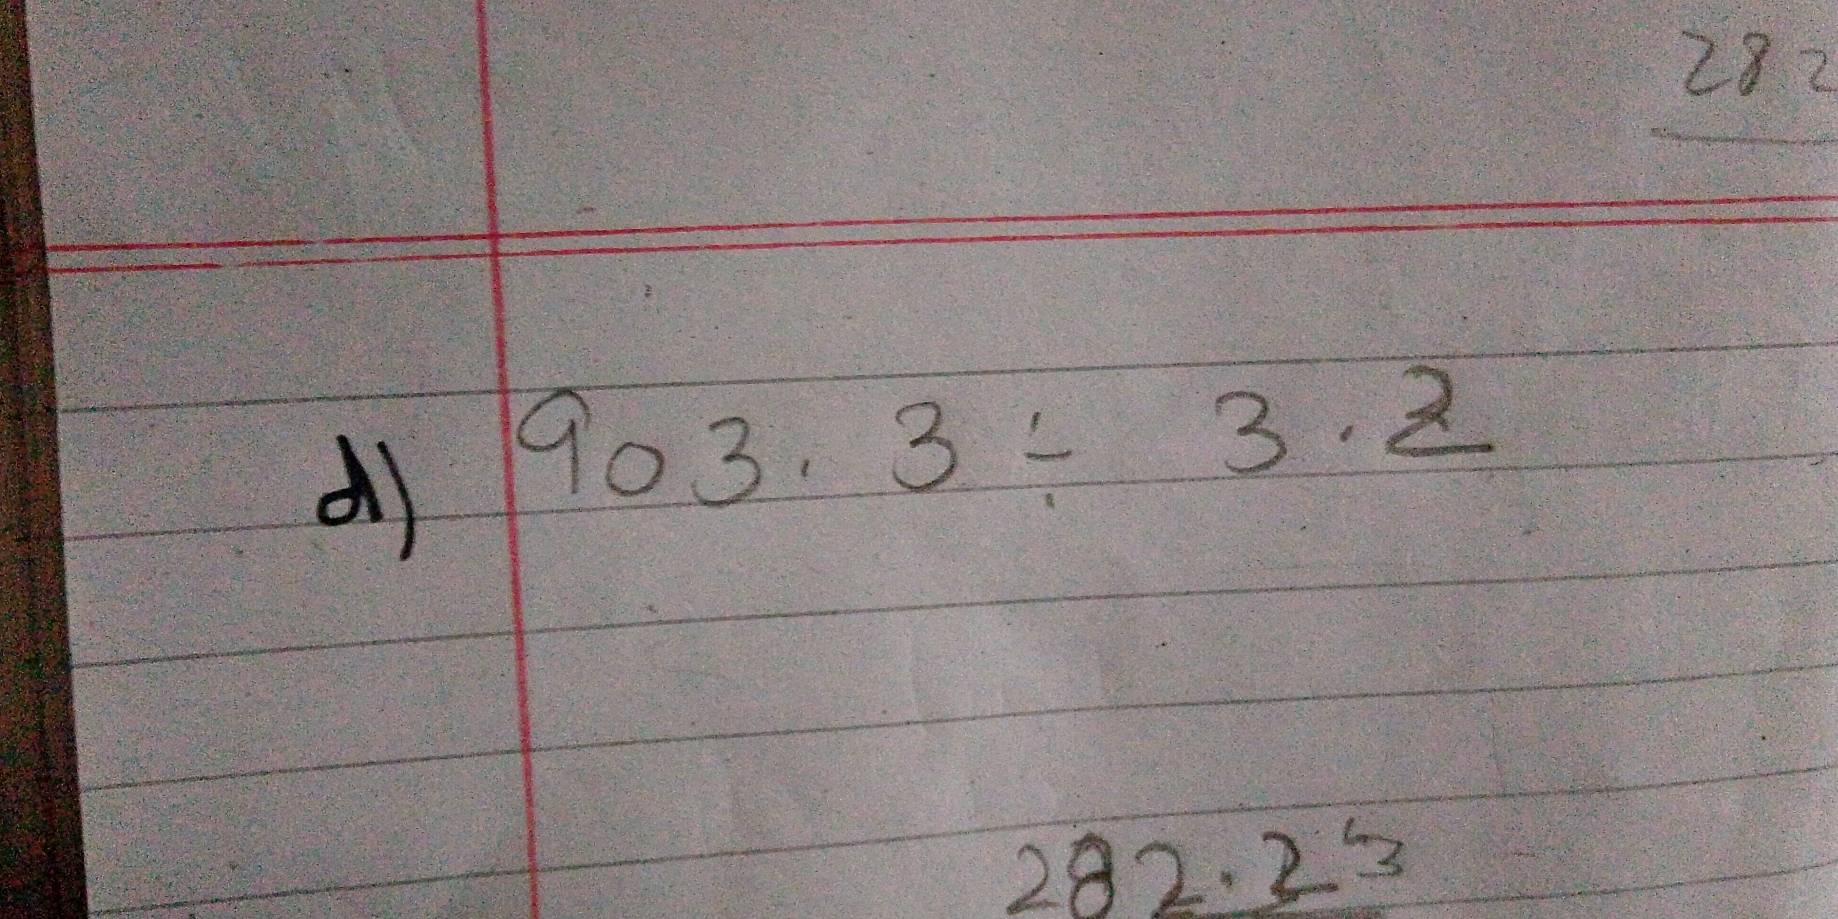 282
d) 903.3 ÷ 3.2
282.2